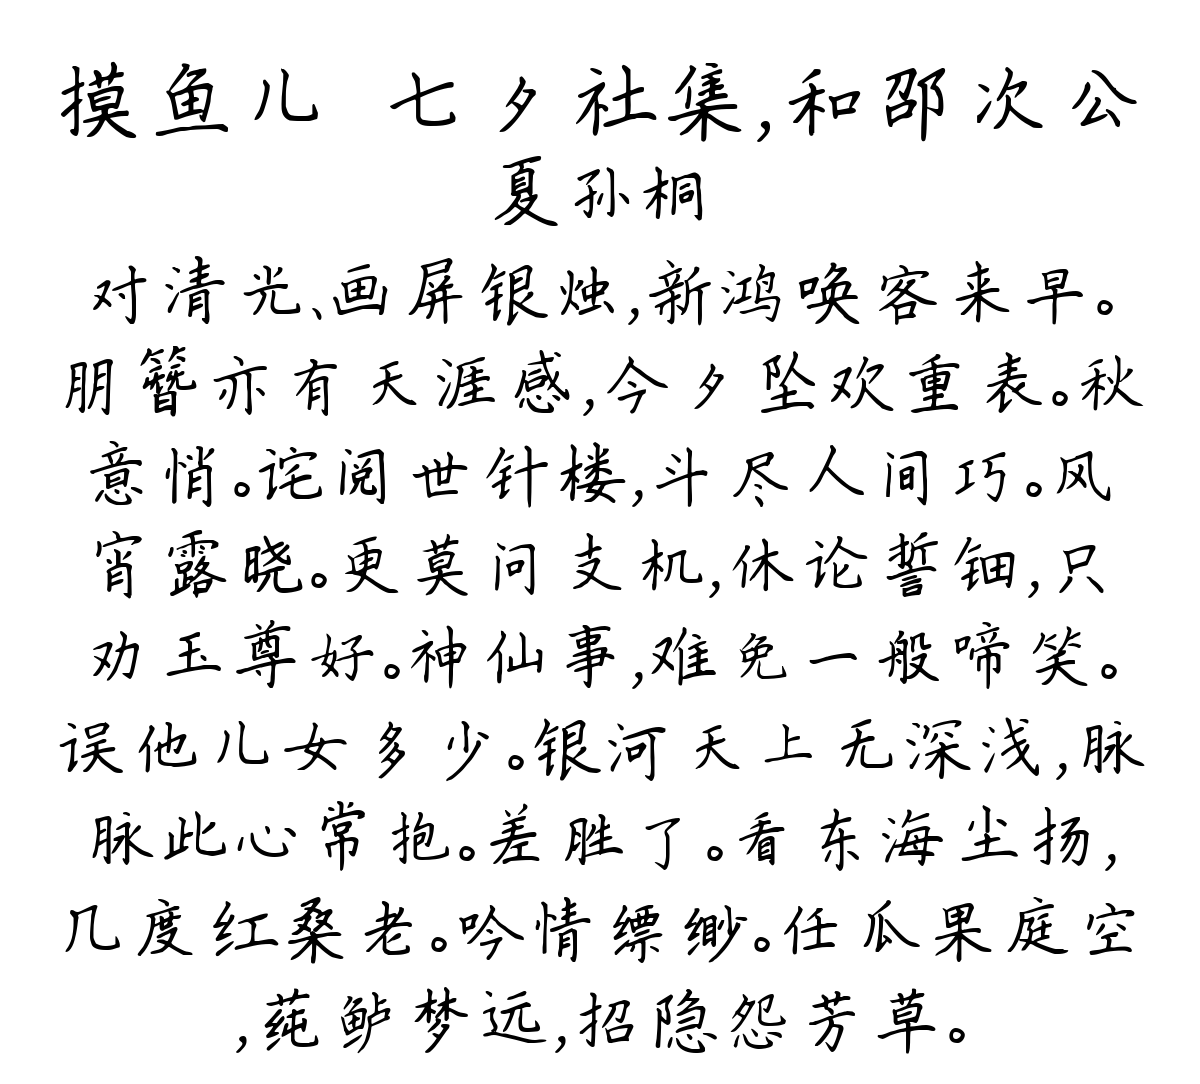 摸鱼儿 七夕社集,和邵次公
夏孙桐
对清光、画屏银烛,新鸿唤客来早。
朋簪亦有天涯感,今夕坠欢重表。秋
意悄。诧阅世针楼,斗尽人间巧。风
宵露晓。更莫问支机,休论誓钿,只
劝玉尊好。神仙事,难免一般啼笑。
误他儿女多少。银河天上无深浅,脉
脉此心常抱。差胜了。看东海尘扬,
几度红桑老。吟情缥缈。任瓜果庭空
,莼鲈梦远,招隐怨芳草。